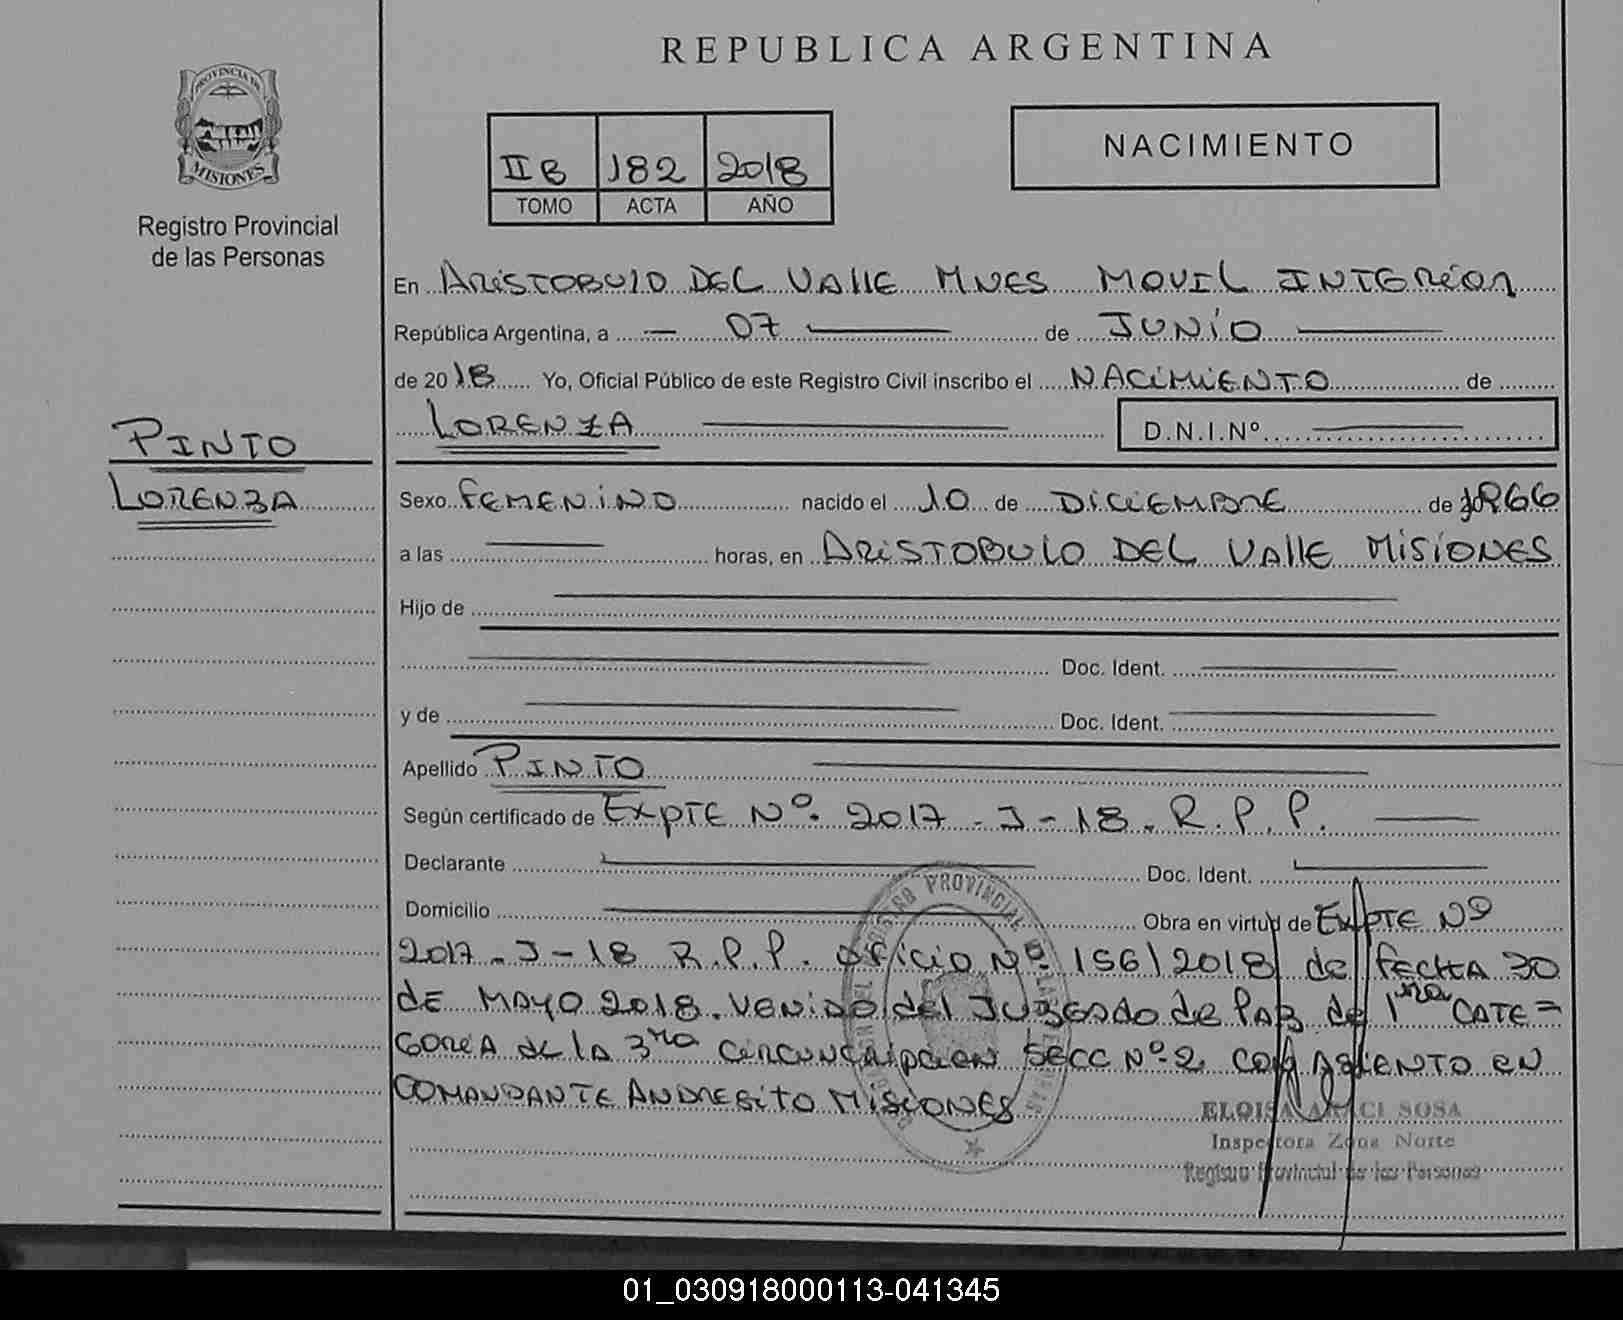 REPUBLICA ARGENTINA
PROVINCIA DE
MISIONES
Registro Provincial
de las Personas
II B 182 2018
TOMO ACTA AÑO
NACIMIENTO
En ARISTOBULO DEL VALLE MNES MOVIL INTERIOR
República Argentina, a 07 de JUNIO
de 2018 Yo, Oficial Público de este Registro Civil inscribo el NACIMIENTO de
LORENZA D.N.I.Nº
PINTO
LORENZA
Sexo FEMENINO nacido el 10 de DICIEMBRE de 1966
a las horas, en ARISTOBULO DEL VALLE MISIONES
Hijo de
Doc. Ident.
y de Doc. Ident.
Apellido PINTO
Según certificado de EXPTE Nº. 2017 - J - 18. R.P.P.
Declarante Doc. Ident.
Domicilio Obra en virtud de EXPTE Nº
2017 - J - 18 R.P.P. OFICIO Nº 156/2018 de FECHA 30
DE MAYO 2018. VENIDO del JUZGADO de PAZ de 1ra CATE=
GORIA de la 3ra CIRCUNCRIPCION SECC Nº 2 CON ASIENTO EN
COMANDANTE ANDRESITO MISIONES
REGISTRO PROVINCIAL
ELOISA ARACI SOSA
Inspectora Zona Norte
Registro Provincial de las Personas
01_030918000113-041345